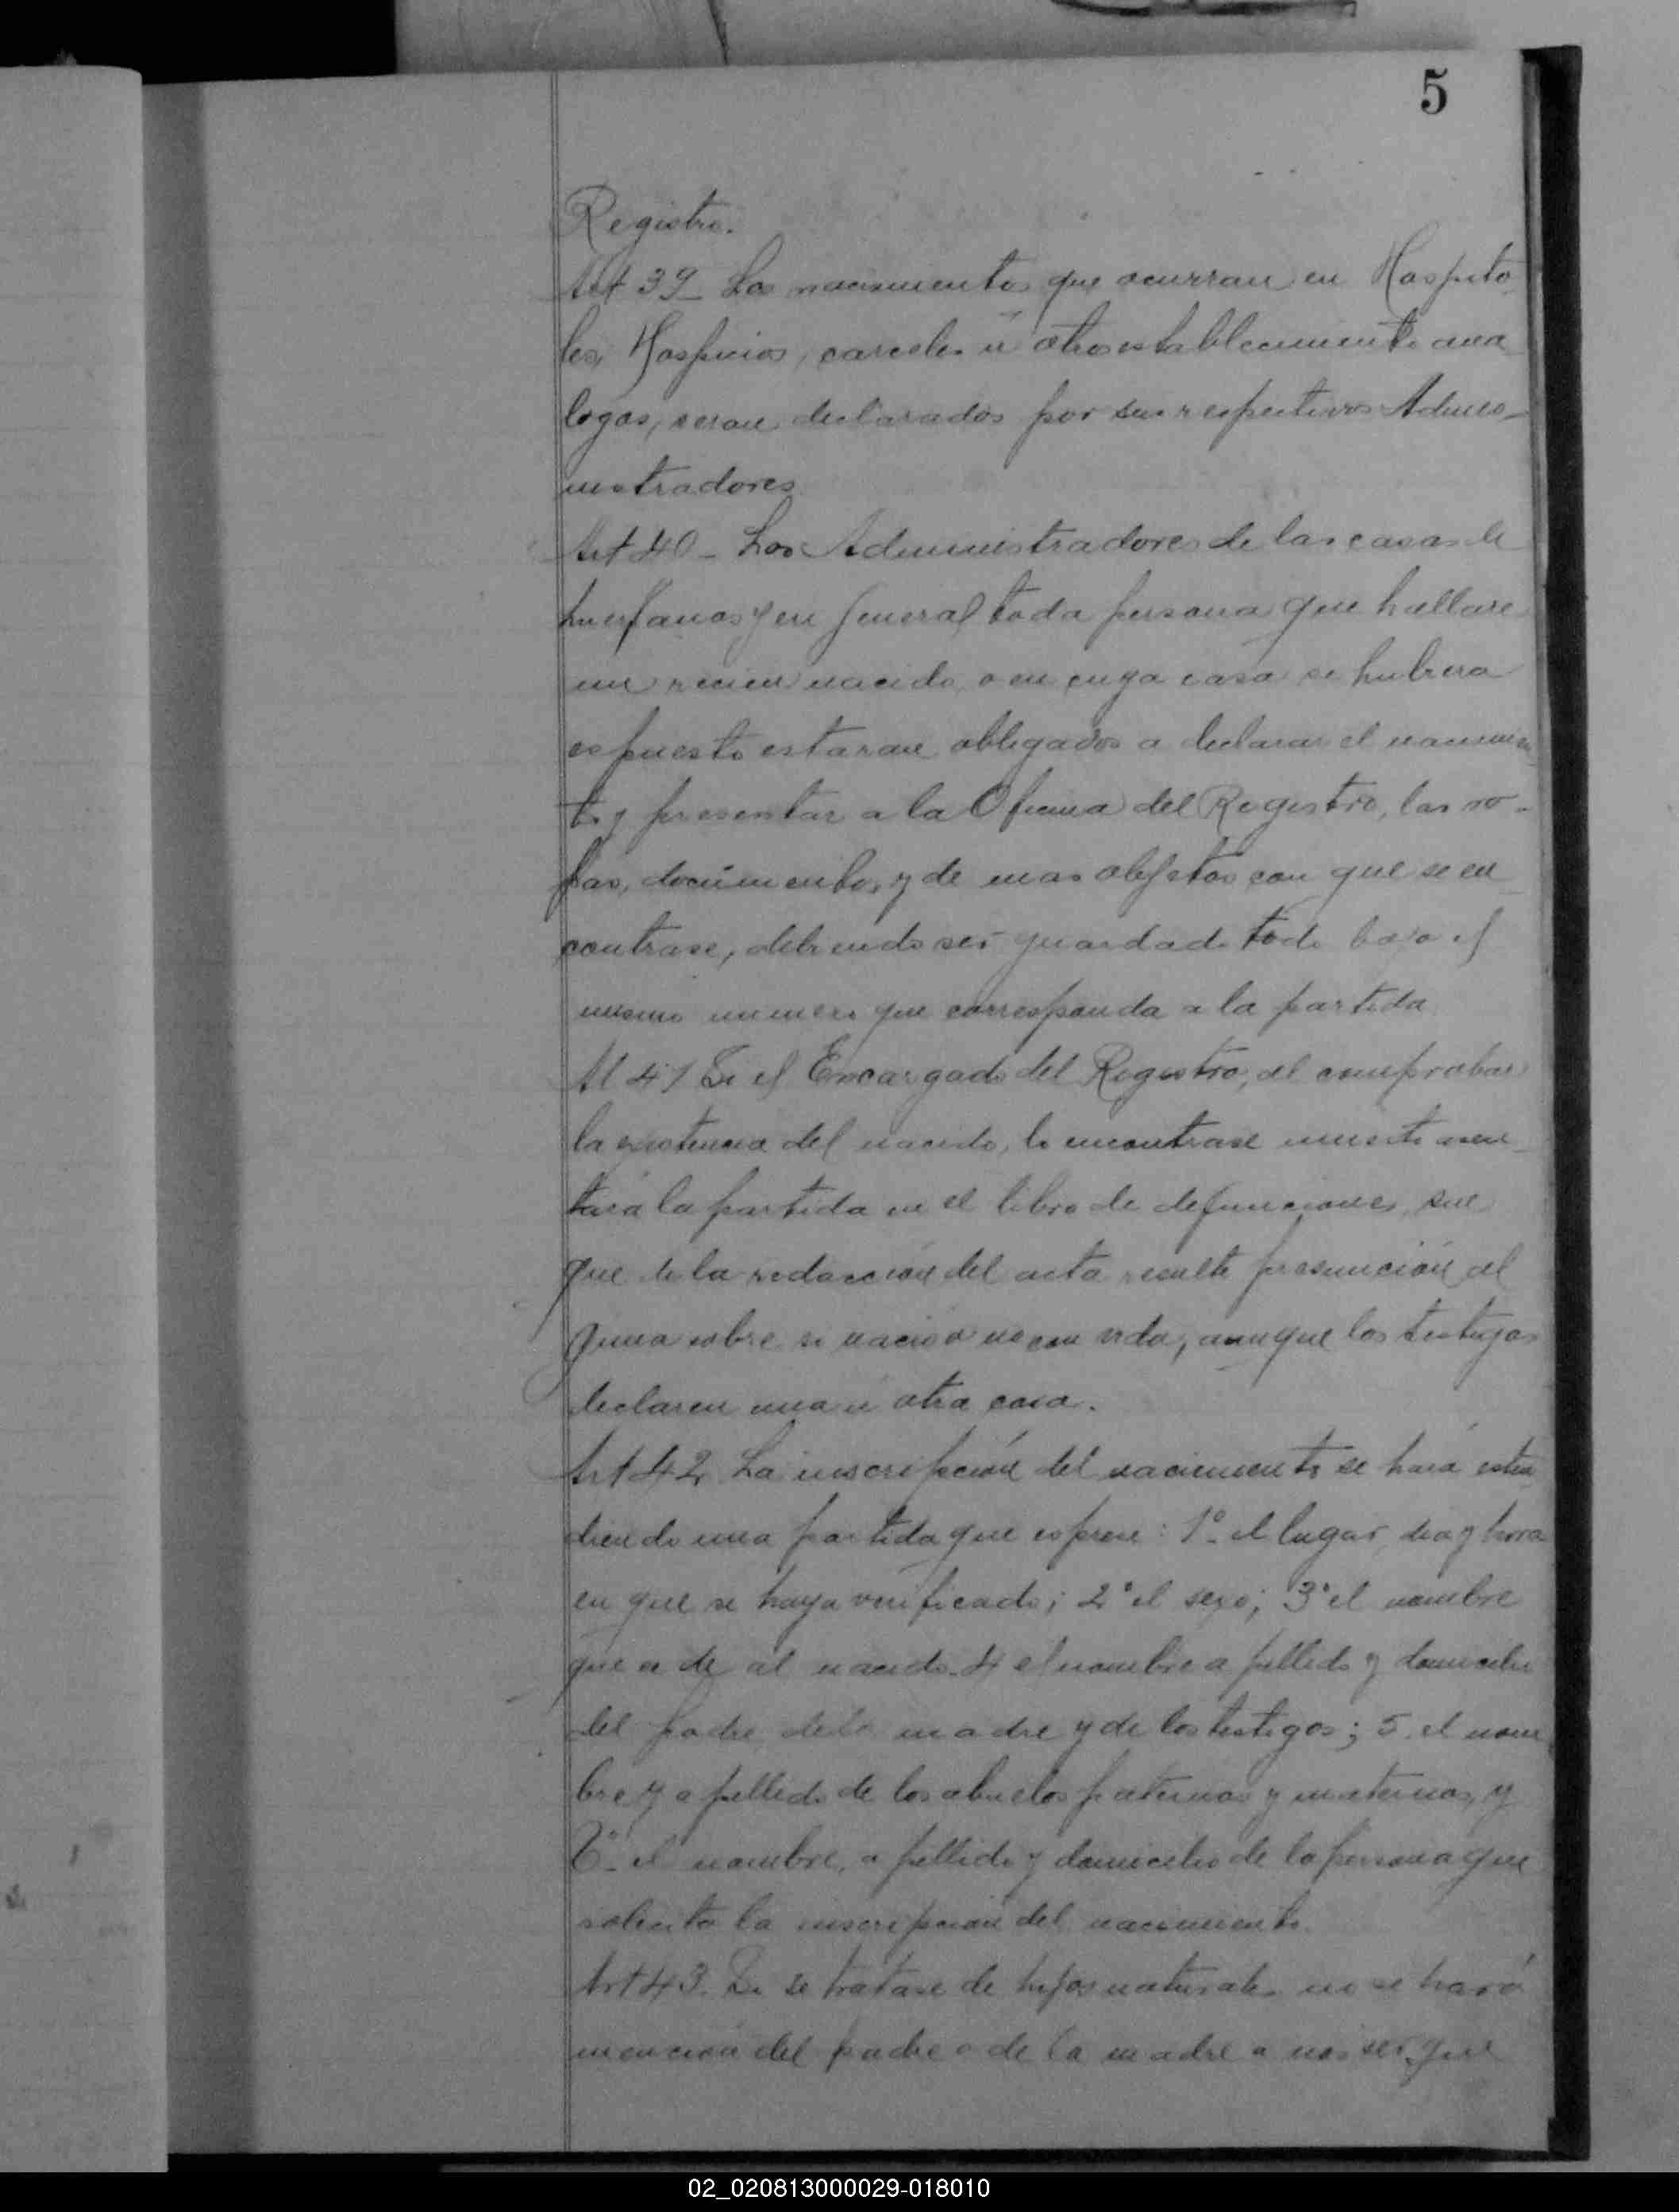 5
Registro.
Art 39_ Los nacimientos que ocurran en Hospita
les, Hospicios, carceles ú otros establecimientos ana
logos, seran declarados por sus respectivos Admi-
nistradores.
Art 40_ Los Administradores de las casas de
huerfanos y en general toda persona que hallare
un recien nacido, o en cuya casa se hubiera
espuesto estaran obligados a declarar el nacimien
to y presentar a la Oficina del Registro, las ro-
pas, documentos, y de mas objetos con que se en
contrase, debiendo ser guardado todo bajo el
mismo numero que corresponda a la partida
Al 41 Si el Encargado del Registro, al comprobar
la existencia del nacido, lo encontrase muerto asen
tará la partida en el libro de defunciones, sin
que de la redacción del acta resulte presunción al
guna sobre si nació o no con vida, aunque los testigos
declaren una u otra cosa.
Art 42 La inscripción del nacimiento se hará esten
diendo una partida que esprese: 1º_ el lugar, dia y hora
en que se haya verificado; 2º el sexo; 3º el nombre
que se de al nacido_4 el nombre apellido y domicilio
del padre, de la madre y de los testigos; 5. el nom
bre y apellido de los abuelos paternos y maternos, y
6º_ el nombre, apellido y domicilio de la persona que
solicita la inscripción del nacimiento.
Art 43. Si se tratase de hijos naturales no se hará
mencion del padre o de la madre a no ser que
02_020813000029-018010